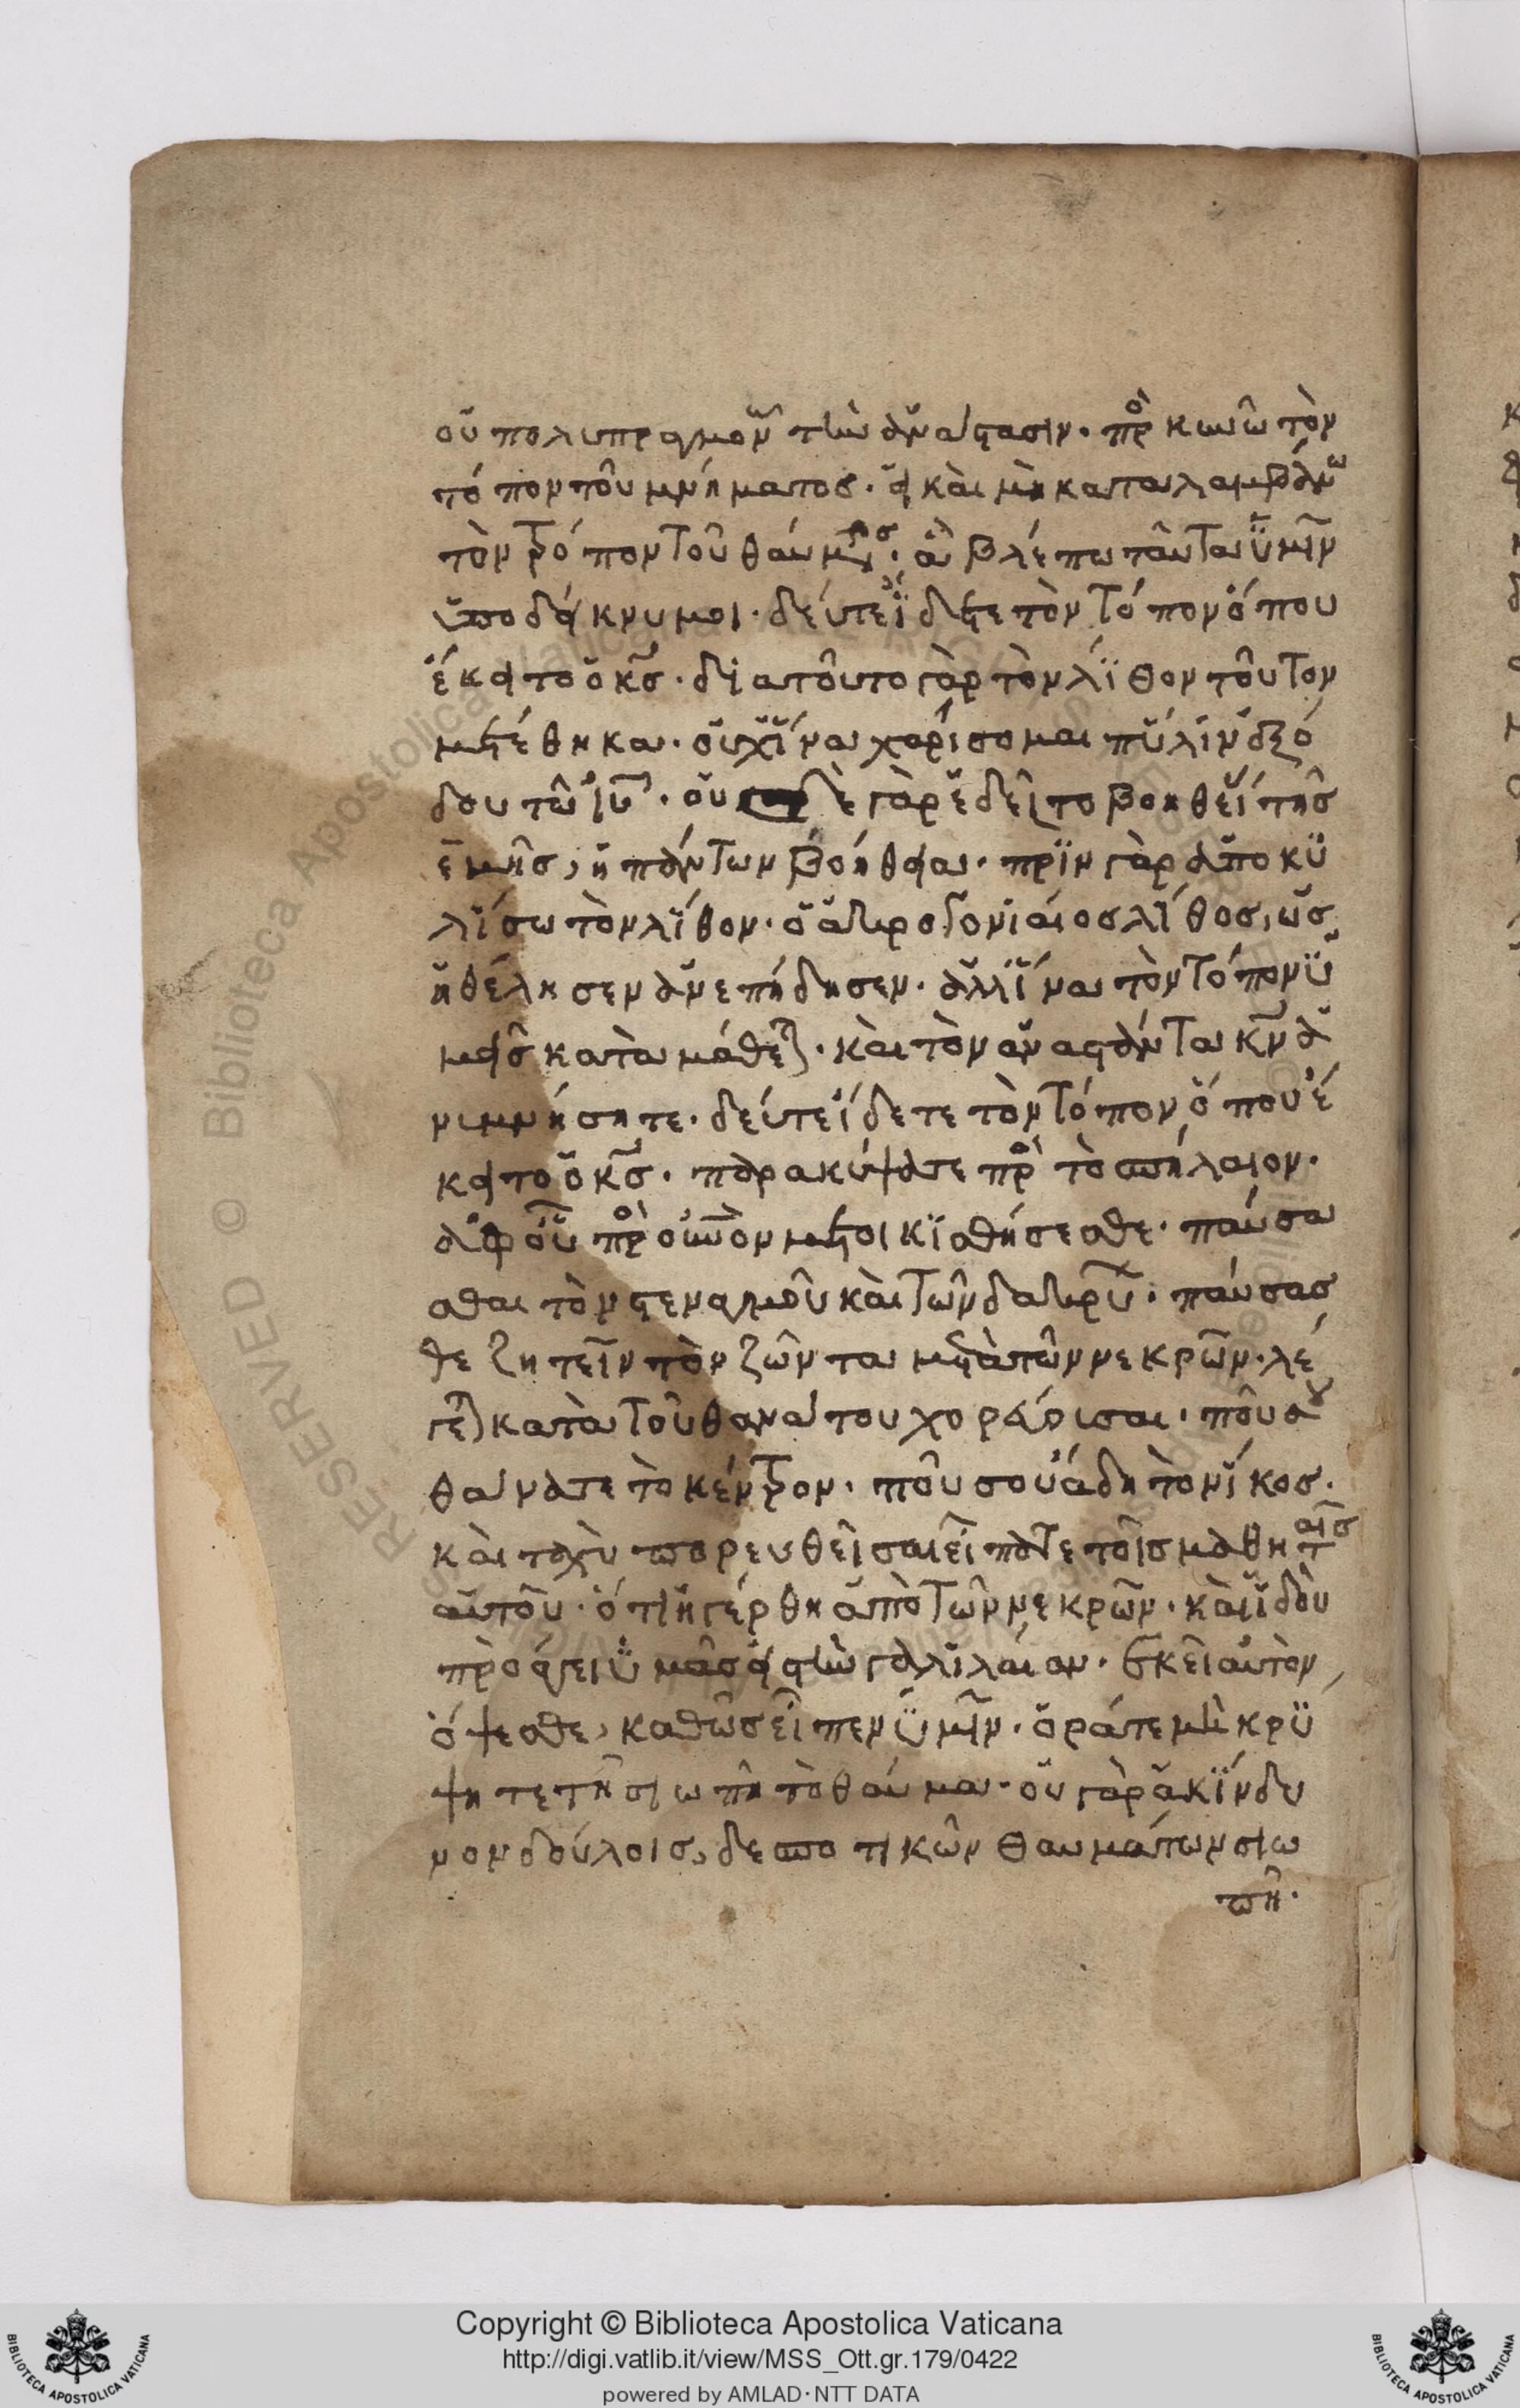 οὐ πολυπραγμονῶ τὴν ἀνάστασιν· προσκυνῶ τὸν
τόπον τοῦ μνήματος· εἰ καὶ μὴ καταλαμβάνω
τὸν τρόπον τοῦ θαύματος· ἃ βλέπω ταῦτα ὑμῖν
ὑποδείκνυμι· δεύτε ἴδετε τὸν τόπον ὅπου
ἔκειτο ὁ κσ· διατοῦτο γὰρ τὸν λίθον τοῦτον
μετέθηκα· οὐχ ἵνα χαρίσομαι πύλιν ἐξό
δου τῶ ιυ· οὐ δὲ γὰρ ἐδεῖτο βοηθείτης
ἐμῆς, ἡ πάντων βοήθεια· πρὶν γὰρ ἀποκυ
λίσω τὸν λίθον· ὁ ἀκρογονιαῖος λίθος, ὡς
ἠθέλησεν ἀνεπήδησεν· ἀλλ' ἵνα τὸν τόπον ὑ
μεῖς καταμάθετε· καὶ τὸν ἀναστάντα κν ἀ
νυμνήσητε· δεύτε ἴδετε τὸν τόπον ὅπου ἔ
κειτο ὁ κσ· παρακύψατε πρὸς τὸ σπήλαιον·
ἀφ' οὗ πρὸς οὐνον μετοικισθήσεσθε· παύσα
σθαι τὸν στεναγμοῦ καὶ τῶν δακρύων· παύσασ
θε ζητεῖν τὸν ζῶντα μετὰ τῶν νεκρῶν· λέ
γετε κατὰ τοῦ θανάτου χορεύσαι· ποῦ σου
θάνατε τὸ κέντρον· ποῦ σου ἄδη τὸ νίκος·
καὶ ταχὺ πορευθεῖσαι εἴπατε τοῖς μαθηταῖς
αὐτοῦ· ὅτι ἠγέρθη ἀπὸ τῶν νεκρῶν· καὶ ἰδοὺ
προάγει ὑμᾶς εἰς τὴν γαλιλαίαν· ἐκεῖ αὐτὸν
ὄψεσθε, καθὼς εἶπεν ὑμῖν· ὁράτε μὴ κρύ
ψητε τῆ σιωπῆ τὸ θαύμα· οὐ γὰρ ἀκίνδυ
νον δούλοις, δεσποτικῶν θαυμάτων σιω
πή·
RESERVED © Biblioteca Apostolica Vaticana
Copyright © Biblioteca Apostolica Vaticana
http://digi.vatlib.it/view/MSS_Ott.gr.179/0422
powered by AMLAD·NTT DATA
BIBLIOTECA APOSTOLICA VATICANA
BIBLIOTECA APOSTOLICA VATICANA